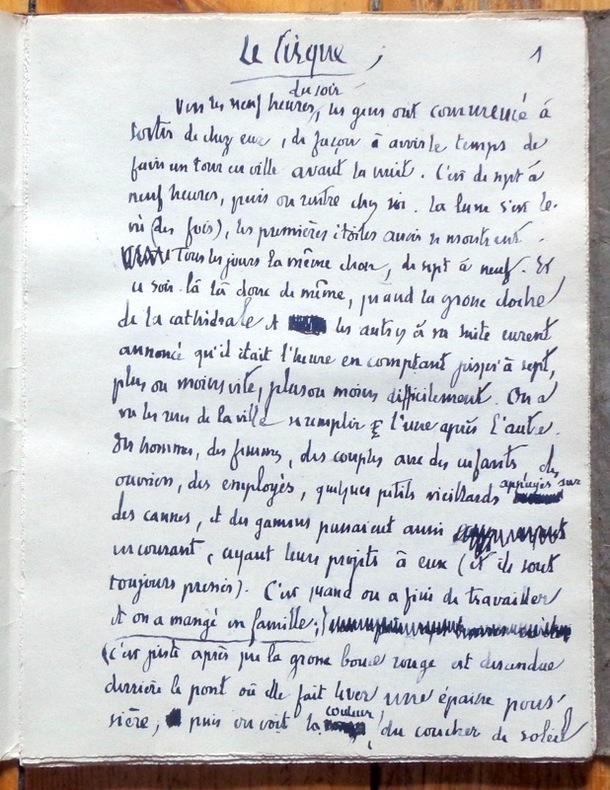 Le Cirque
1
du soir
Vers les neuf heures, les gens ont commencé à
sortir de chez eux, de façon à avoir le temps de
faire un tour en ville avant la nuit. C'est de sept à
neuf heures, puis on rentre chez soi. La lune s'est le-
vée (des fois), les premières étoiles aussi se montrent.
Tous les jours la même chose, de sept à neuf. Et
ce soir-là là donc de même, quand la grosse cloche
de la cathédrale et les autres à sa suite eurent
annoncé qu'il était l'heure en comptant jusqu'à sept,
plus ou moins vite, plus ou moins difficilement. On a
vu les rues de la ville se remplir l'une après l'autre.
Des hommes, des femmes, des couples avec des enfants, des
ouvriers, des employés, quelques petits vieillards appuyés sur
des cannes, et des gamins passaient aussi
en courant, ayant leurs projets à eux (et ils sont
toujours pressés). C'est quand on a fini de travailler
et on a mangé en famille;
(c'est juste après que la grosse boule rouge est descendue
derrière le pont où elle fait lever une épaisse pous-
sière, puis on voit la couleur du coucher de soleil